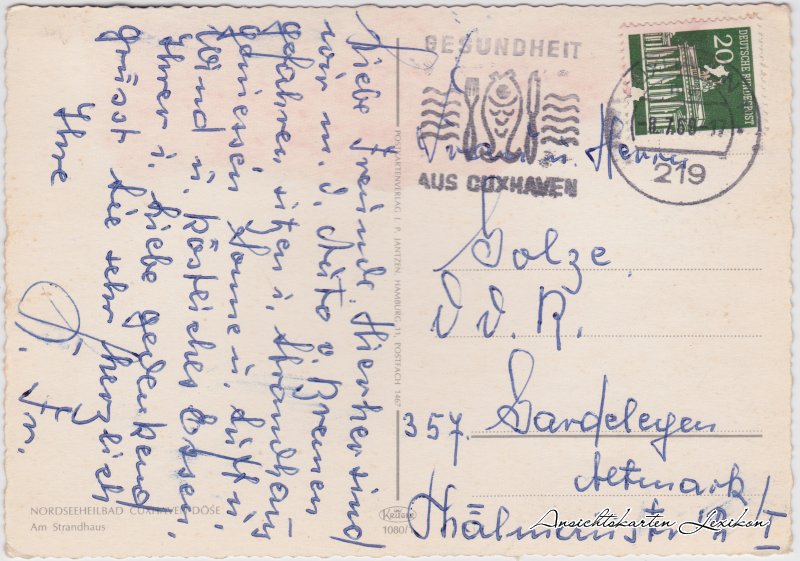 Liebe Freunde. Hierher sind
wir m. d. Auto v. Bremen
gefahren, sitzen i. Strandhaus
geniessen Sonne u. Luft u.
Wind u. köstliches Essen.
Ihrer i. Liebe gedenkend
grüsst Sie sehr herzlich
Ihre
Fr.
NORDSEEHEILBAD CUXHAVEN-DÖSE
Am Strandhaus
POSTKARTENVERLAG J. P. JANTZEN, HAMBURG 13, POSTFACH 1467
Krüger
1080/
GESUNDHEIT
AUS CUXHAVEN
219
20
DEUTSCHE BUNDESPOST
Frau u. Herrn
Golze
D. D. R.
357. Gardelegen
Altmark
Thälmannstr.
Ansichtskarten Lexikon